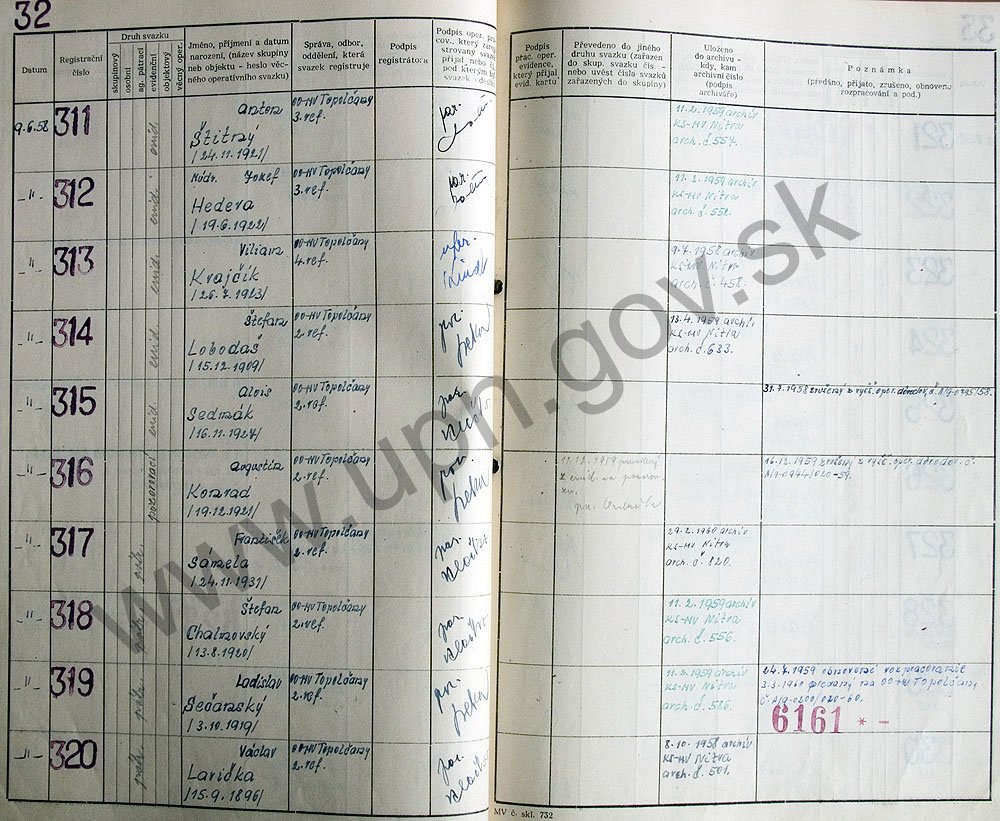 32
Datum
Registrační
číslo
Druh svazku
skupinový
osobní
ag. pátrací
evidenční
objektový
věcný oper.
Jméno, příjmení a datum
narození, (název skupiny
neb objektu - heslo věc-
ného operativního svazku)
Správa, odbor,
oddělení, která
svazek registruje
Podpis
registrátora
Podpis oper. prac
cov., který zareg
strovaný svazek
přijal nebo
pod kterým by
svazek
Podpis
prac. oper.
evidence,
který přijal
evid. kartu
Převedeno do jiného
druhu svazku (zařazen
do skup. svazku čís. -
nebo uvést čísla svazků
zařazených do skupiny)
Uloženo
do archivu -
kdy, kam
archivní číslo
(podpis
archiváře)
Poznámka
(předáno, přijato, zrušeno, obnoveno
rozpracování a pod.)
9.6.58 311 evid. Anton
Štitný
/24.11.1921/
OO-MV Topolčany
3.ref.
11.2.1959 archív
KS-MV Nitra
arch. č. 557.
-"- 312 evid. Jozef
Hedera
/19.6.1922/
OO-MV Topolčany
3.ref.
11.2.1959 archív
KS-MV Nitra
arch. č. 558.
-"- 313 evid. Viliam
Krajčík
/26.7.1923/
OO-MV Topolčany
4.ref.
9.7.1958 archív
KS-MV Nitra
arch. č. 458.
-"- 314 evid. Štefan
Lobodáš
/15.12.1909/
OO-MV Topolčany
2.ref.
13.4.1959 archív,
KS-MV Nitra
arch. č. 633.
-"- 315 evid. Alois
Sedmák
/16.11.1927/
OO-MV Topolčany
2.ref.
31.7.1958 zručený z vyčč. oper. dôvodov, č. A/9-0795/58.
-"- 316 pozorovací Augustín
Konrad
/19.12.1921/
OO-MV Topolčany
2.ref.
z evid. na pozorov.
zv.
16.12.1959 zručený z vyčč. oper. dôvodov. č.
A/9-0944/020-59.
-"- 317 František
Samela
/24.11.1931/
OO-MV Topolčany
2.ref.
29.2.1960 archív
KS-MV Nitra
arch. č. 820.
-"- 318 Štefan
Chalmovský
/13.8.1920/
OO-MV Topolčany
2.ref.
11.2.1959 archív
KS-MV Nitra
arch. č. 556.
-"- 319 Ladislav
Sečanský
/3.10.1919/
OO-MV Topolčany
2.ref.
11.2.1959 archív
KS-MV Nitra
arch. č. 586.
24.7.1959 obnovené rozpracovanie
3.3.1960 predaný na OO-MV Topolčany
č. A/9-0200/020-60.
6161 * -
-"- 320 Václav
Lavička
/15.9.1896/
OO-MV Topolčany
2.ref.
8.10.1958 archív
KS-MV Nitra
arch. č. 501.
MV č. skl. 732
www.upn.gov.sk